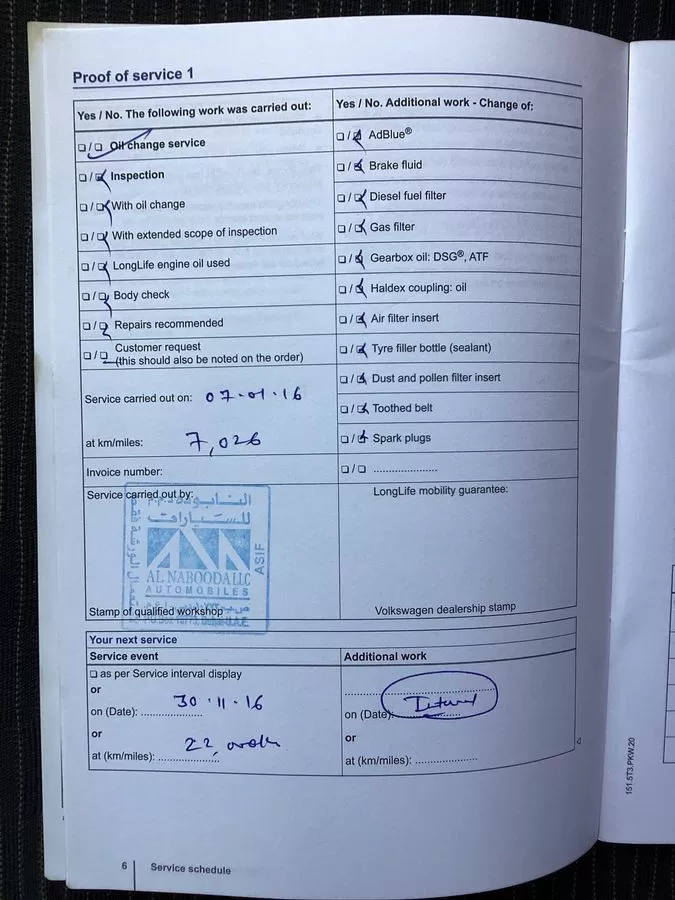 Proof of service 1
Yes / No. The following work was carried out:
☐/☐ Oil change service
☐/☐ Inspection
☐/☐ With oil change
☐/☐ With extended scope of inspection
☐/☐ LongLife engine oil used
☐/☐ Body check
☐/☐ Repairs recommended
☐/☐ Customer request
(this should also be noted on the order)
Service carried out on: 07-01-16
at km/miles: 7,026
Invoice number:
Service carried out by:
النابوده
للسيارات
AL NABOODA LLC
AUTOMOBILES
ASIF
Stamp of qualified workshop
Yes / No. Additional work - Change of:
☐/☐ AdBlue®
☐/☐ Brake fluid
☐/☐ Diesel fuel filter
☐/☐ Gas filter
☐/☐ Gearbox oil: DSG®, ATF
☐/☐ Haldex coupling: oil
☐/☐ Air filter insert
☐/☐ Tyre filler bottle (sealant)
☐/☐ Dust and pollen filter insert
☐/☐ Toothed belt
☐/☐ Spark plugs
☐/☐ ....................
LongLife mobility guarantee:
Volkswagen dealership stamp
Your next service
Service event
☐ as per Service interval display
or
on (Date): 30.11.16
or
at (km/miles): 22,
Additional work
on (Date):
or
at (km/miles): ....................
151.5T3.PKW.20
6 Service schedule